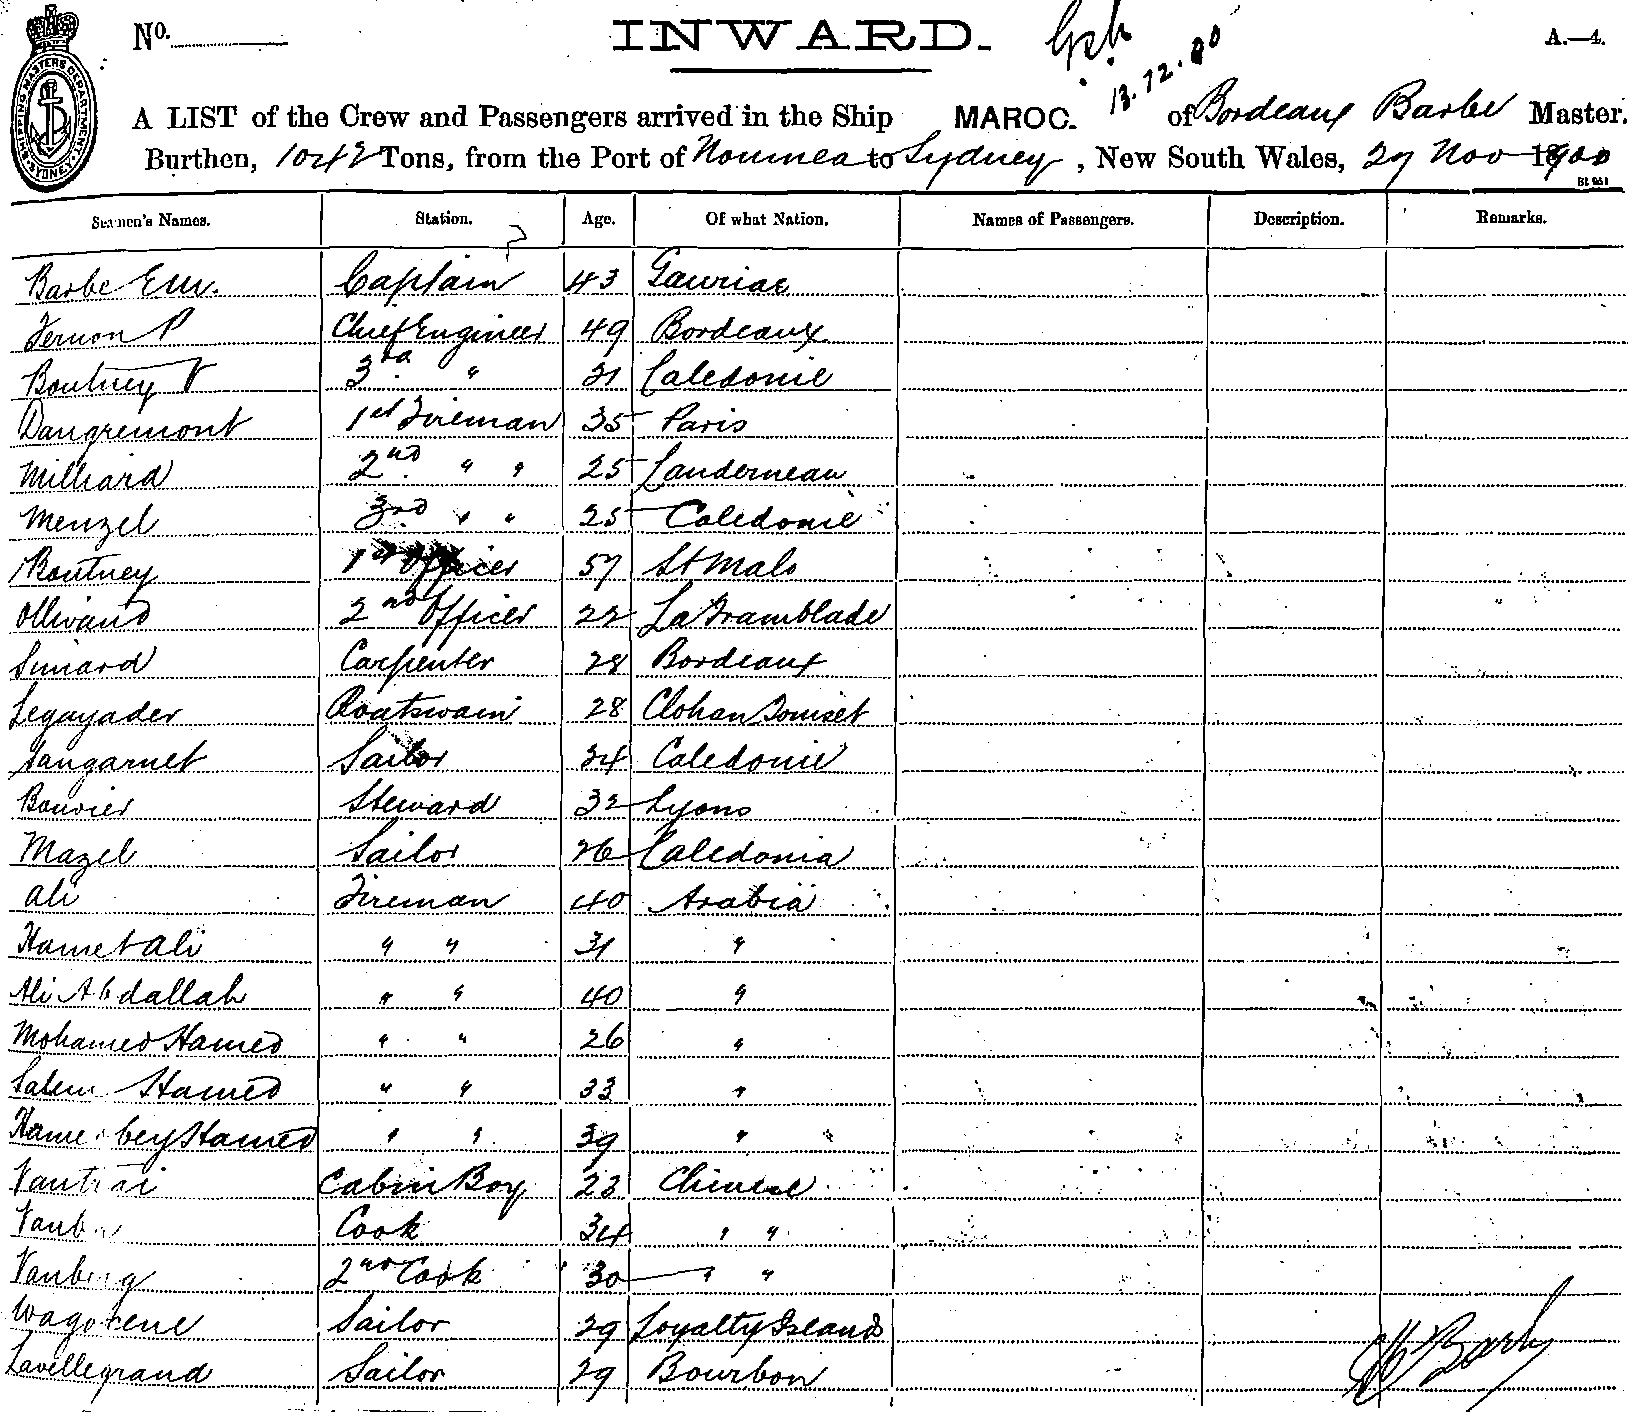 No. INWARD. A.—4.
13.12.00
A LIST of the Crew and Passengers arrived in the Ship MAROC. of Bordeaux Barbe Master.
Burthen, 1042 Tons, from the Port of Noumea to Sydney, New South Wales, 27 Nov 1900
SHIPPING MASTERS DEPARTMENT SYDNEY
Seamen's Names. Station. Age. Of what Nation. Names of Passengers. Description. Remarks.
Barbe Em. Captain 43 Gauriac
Vernon P Chief Engineer 49 Bordeaux
Boutney V 3rd " 21 Caledonie
Dangremont 1st Fireman 35 Paris
Milliard 2nd " " 25 Landerneau
Menzel 3rd " " 25 Caledonie
Boutney 1st Officer 57 St Malo
Ollivaud 2nd Officer 22 La Tramblade
Simard Carpenter 28 Bordeaux
Legayader Boatswain 28 Clohan
Sangarnet Sailor 24 Caledonie
Bouvier Steward 32 Lyons
Mazel Sailor 26 Caledonia
Ali Fireman 40 Arabia
Hamet Ali " " 31 "
Ali Abdallah " " 40 "
Mohamed Hamed " " 26 "
Salem Hamed " " 33 "
bey Hamed " " 39 "
Cabin Boy 23 Chinese
Cook 34 " "
2nd Cook 30 " "
Wagotene Sailor 29 Loyalty Island
Lavillegrand Sailor 29 Bourbon